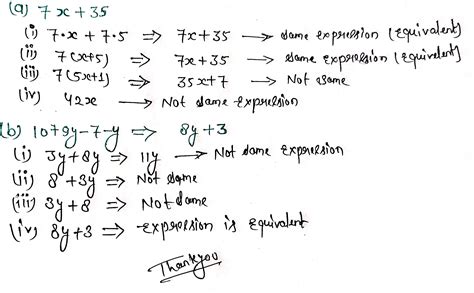 (a) 7x+35
(i) 7·x + 7·5 ⇒ 7x+35 → same expression (equivalent)
(ii) 7(x+5) ⇒ 7x+35 → same expression (equivalent)
(iii) 7(5x+1) ⇒ 35x+7 → Not same
(iv) 42x → Not same expression
(b) 10+9y-7-y ⇒ 8y+3
(i) 3y+8y ⇒ 11y → Not same expression
(ii) 8+3y ⇒ Not same
(iii) 3y+8 ⇒ Not same
(iv) 8y+3 ⇒ expression is equivalent
Thankyou